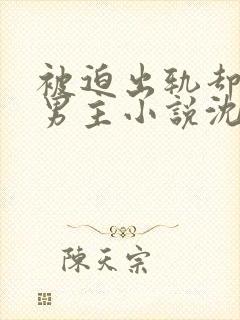 被迫出轨却
男主小説沈
陳天宗